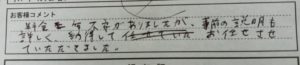 お客様コメント
料金等不安がありましたが、事前の説明も
詳しく、納得してお任せさせ
ていただきました。